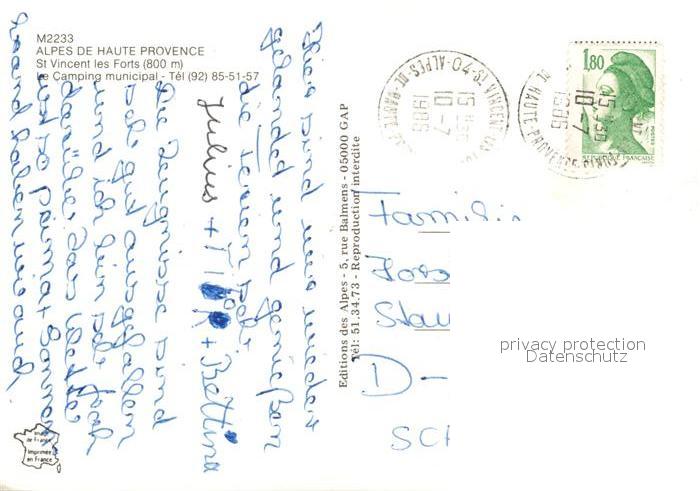 M2233
ALPES DE HAUTE PROVENCE
St Vincent les Forts (800 m)
Le Camping municipal - Tél (92) 85-51-57
Hier sind wir wieder
gelandet und genießen
die Ferien sehr
Julius + TIR + Bettina
Die Zeugnisse sind
sehr gut ausgefallen
und ich bin sehr froh
darüber. Das Wetter
ist so prima + Sonne
Strand haben wir auch
Editions des Alpes - 5, rue Balmens - 05000 GAP
Tél: 51.34.73 - Reproduction interdite
04-ALPES-DE-HAUTE
15 H30
10-7
1986
1,80
REPUBLIQUE FRANÇAISE
POSTES
Familie
D-
SCH
privacy protection
Datenschutz
Image
de France
Imprimée
en France